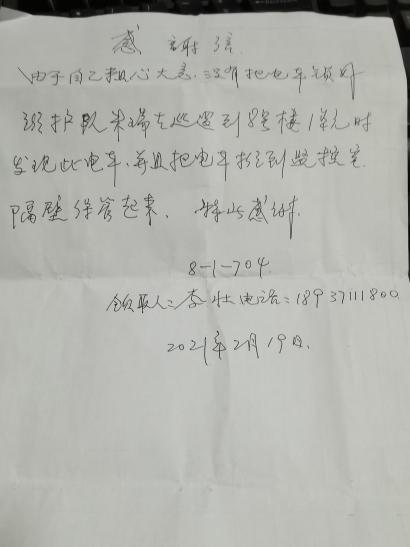 感谢信
由于自己粗心大意.没有把电车锁好
巡护队朱瑞在巡逻到8号楼1单元时
发现此电车.并且把电车推到监控室
隔壁保管起来. 特此感谢.
8-1-704.
领取人:李壮 电话:18937111800
2021年2月19日.